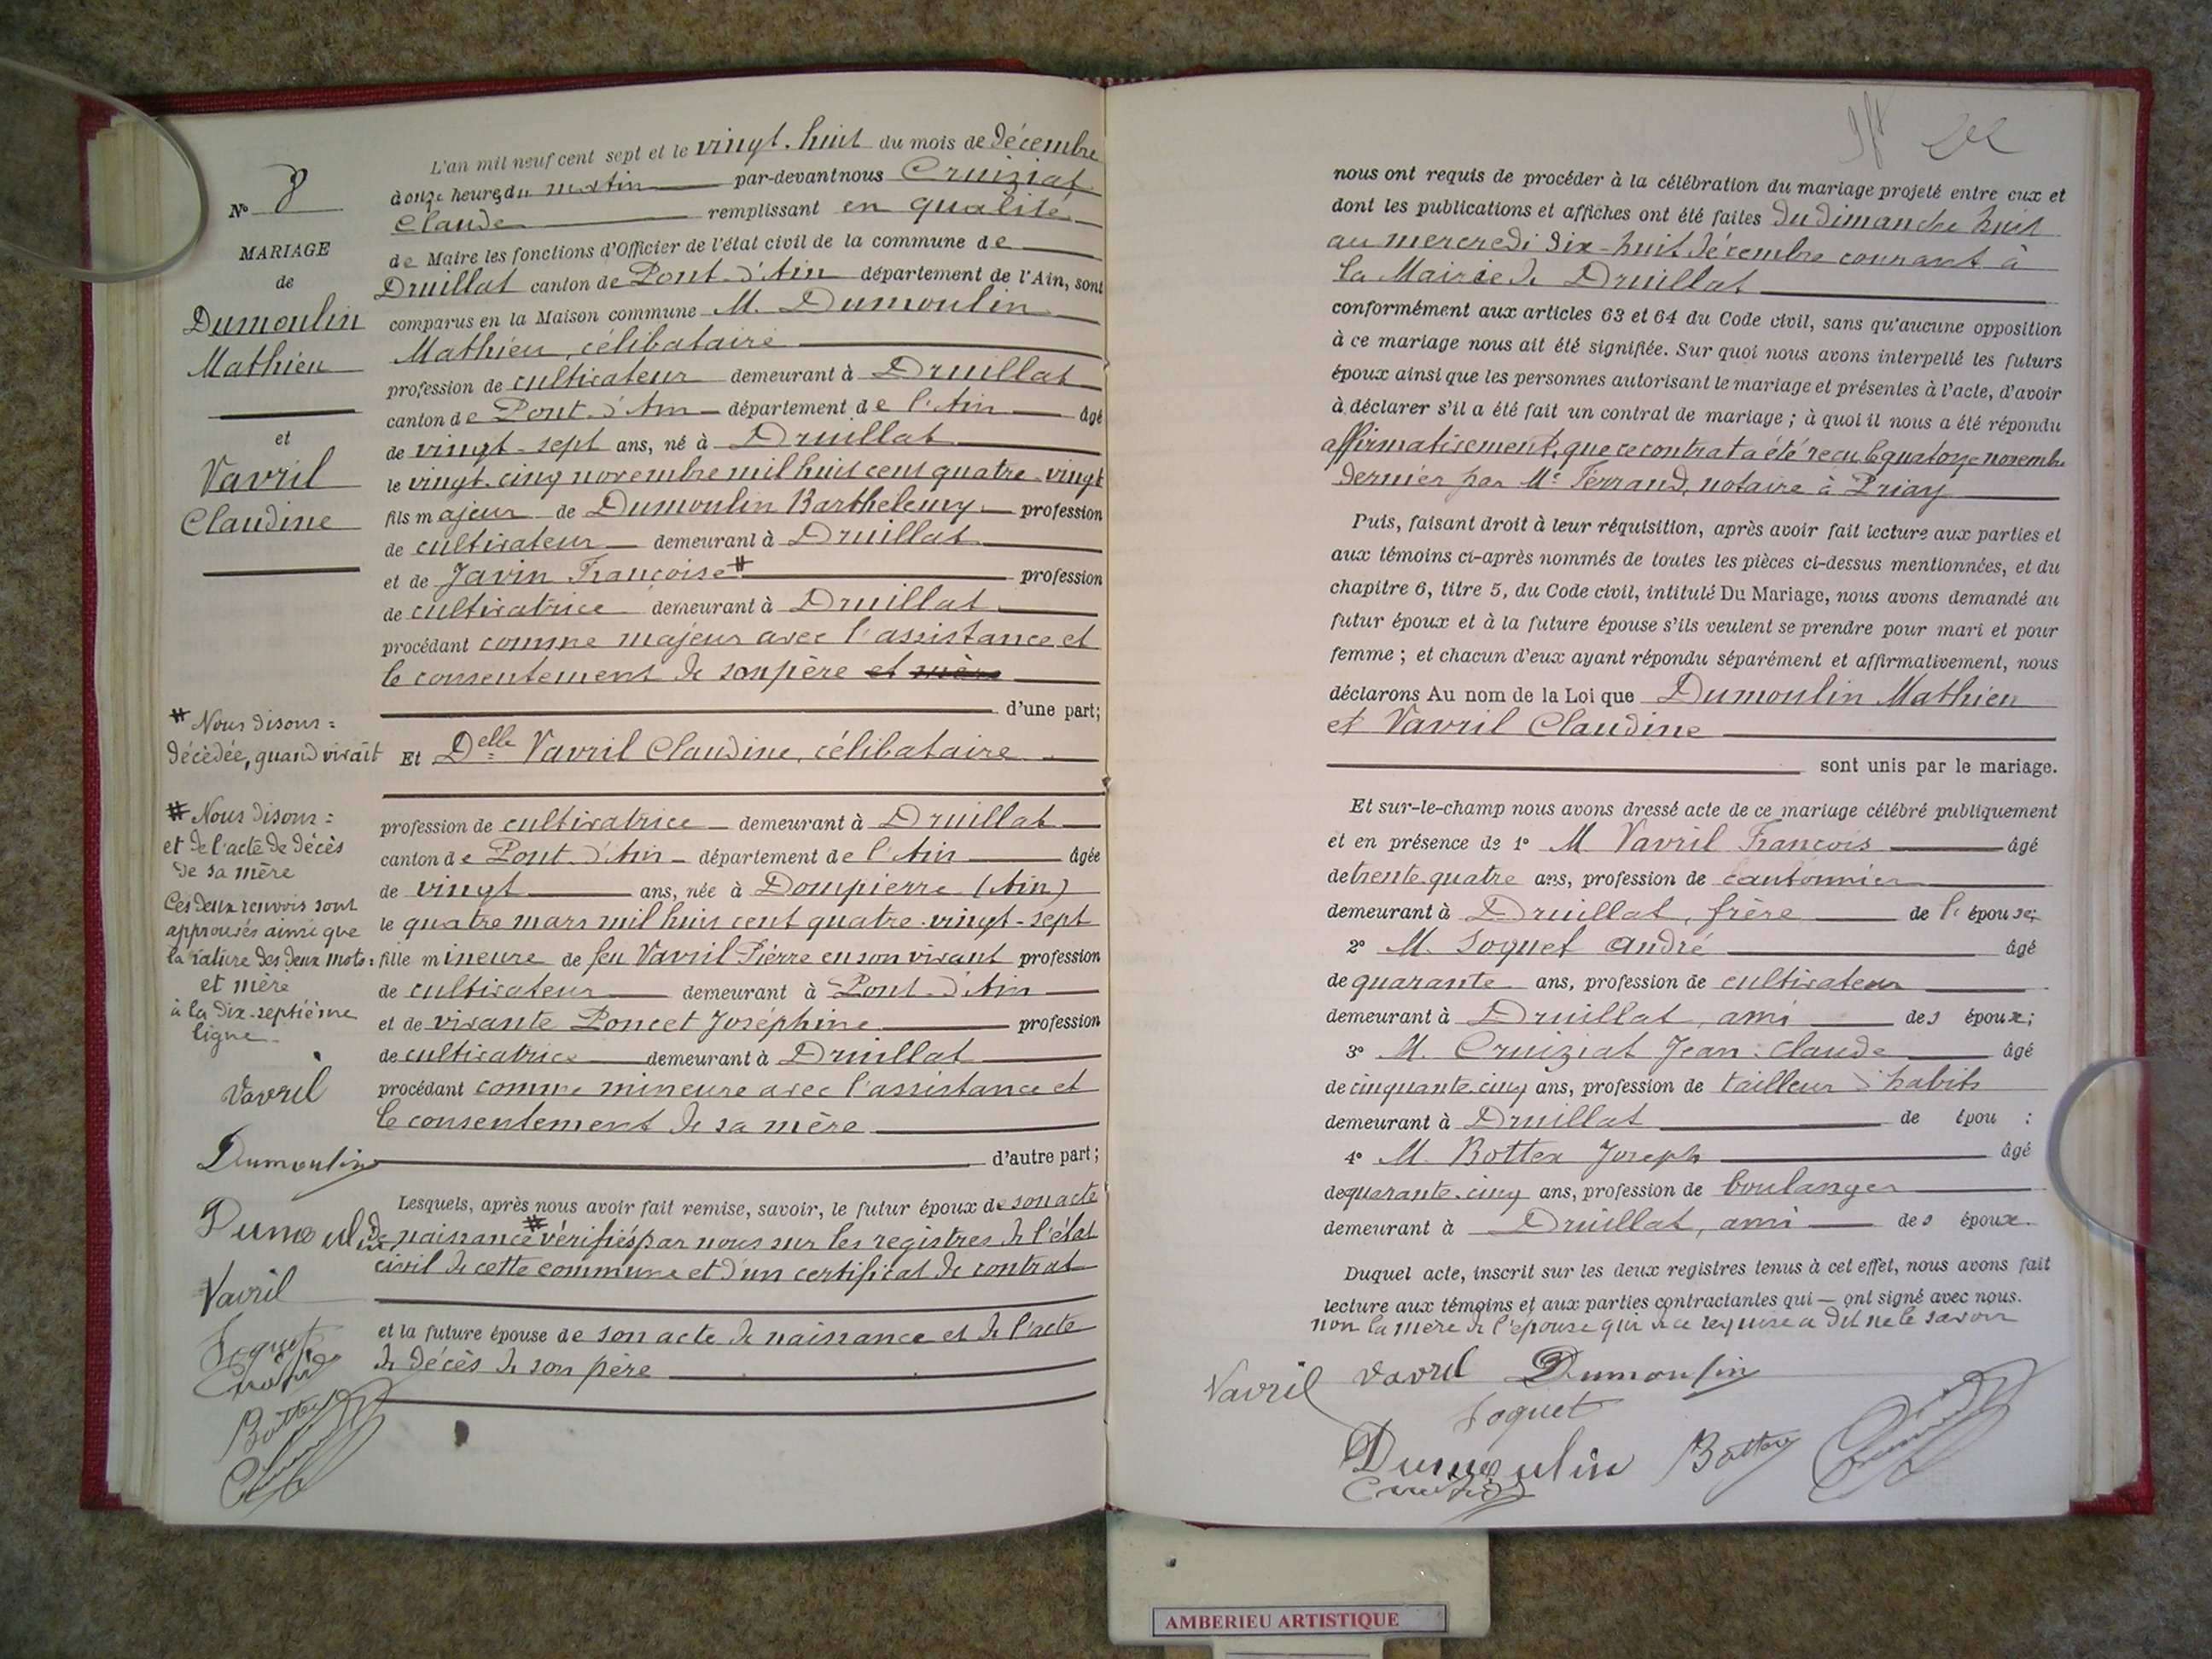 L'an mil neuf cent sept et le vingt-huit du mois de décembre
à onze heures du matin par-devant nous Cruiziat
Claude remplissant en qualité
de Maire les fonctions d'Officier de l'état civil de la commune de
Druillat canton de Pont-d'Ain département de l'Ain, sont
comparus en la Maison commune M. Dumoulin
Mathieu, célibataire
profession de cultivateur demeurant à Druillat
canton de Pont-d'Ain département de l'Ain âgé
de vingt-sept ans, né à Druillat
le vingt-cinq novembre mil huit cent quatre-vingt
fils majeur de Dumoulin Barthelemy profession
de cultivateur demeurant à Druillat
et de Javin Françoise # profession
de cultivatrice demeurant à Druillat
procédant comme majeur avec l'assistance et
le consentement de son père et mère
d'une part;
Et Delle Vavril Claudine, célibataire
profession de cultivatrice demeurant à Druillat
canton de Pont-d'Ain département de l'Ain âgée
de vingt ans, née à Dompierre (Ain)
le quatre mars mil huit cent quatre-vingt-sept
fille mineure de feu Vavril Pierre en son vivant profession
de cultivateur demeurant à Pont-d'Ain
et de vivante Poncet Joséphine profession
de cultivatrice demeurant à Druillat
procédant comme mineure avec l'assistance et
le consentement de sa mère
d'autre part;
Lesquels, après nous avoir fait remise, savoir, le futur époux de son acte
de naissance # vérifiés par nous sur les registres de l'état
civil de cette commune et d'un certificat de contrat
et la future épouse de son acte de naissance et de l'acte
de décès de son père
No 8
MARIAGE
de
Dumoulin
Mathieu
et
Vavril
Claudine
# Nous disons :
décèdée, quand vivait
# Nous disons :
et de l'acte de décès
de sa mère
Ces deux renvois sont
approuvés ainsi que
la rature des deux mots :
et mère
à la dix-septième
ligne.
Vavril
Dumoulin
Dumoulin
Vavril
Soquet
Cruiziat
Bottex
nous ont requis de procéder à la célébration du mariage projeté entre eux et
dont les publications et affiches ont été faites du dimanche huit
au mercredi dix-huit décembre courant à
la Mairie de Druillat
conformément aux articles 63 et 64 du Code civil, sans qu'aucune opposition
à ce mariage nous ait été signifiée. Sur quoi nous avons interpellé les futurs
époux ainsi que les personnes autorisant le mariage et présentes à l'acte, d'avoir
à déclarer s'il a été fait un contrat de mariage ; à quoi il nous a été répondu
affirmativement, que ce contrat a été reçu le quatorze novembre
dernier par Me Ferrand, notaire à Priay
Puis, faisant droit à leur réquisition, après avoir fait lecture aux parties et
aux témoins ci-après nommés de toutes les pièces ci-dessus mentionnées, et du
chapitre 6, titre 5, du Code civil, intitulé Du Mariage, nous avons demandé au
futur époux et à la future épouse s'ils veulent se prendre pour mari et pour
femme ; et chacun d'eux ayant répondu séparément et affirmativement, nous
déclarons Au nom de la Loi que Dumoulin Mathieu
et Vavril Claudine
sont unis par le mariage.
Et sur-le-champ nous avons dressé acte de ce mariage célébré publiquement
et en présence de 1° M. Vavril François âgé
de trente-quatre ans, profession de cantonnier
demeurant à Druillat, frère de l'épouse;
2° M. Soquet André âgé
de quarante ans, profession de cultivateur
demeurant à Druillat, ami des époux;
3° M. Cruiziat Jean-Claude âgé
de cinquante-cinq ans, profession de tailleur d'habits
demeurant à Druillat de épou ;
4° M. Bottex Joseph âgé
de quarante-cinq ans, profession de boulanger
demeurant à Druillat, ami des époux.
Duquel acte, inscrit sur les deux registres tenus à cet effet, nous avons fait
lecture aux témoins et aux parties contractantes qui — ont signé avec nous.
non la mère de l'épouse qui de ce requise a dit ne le savoir
Vavril Vavril Dumoulin
Soquet
Dumoulin Bottex
Cruiziat
AMBERIEU ARTISTIQUE